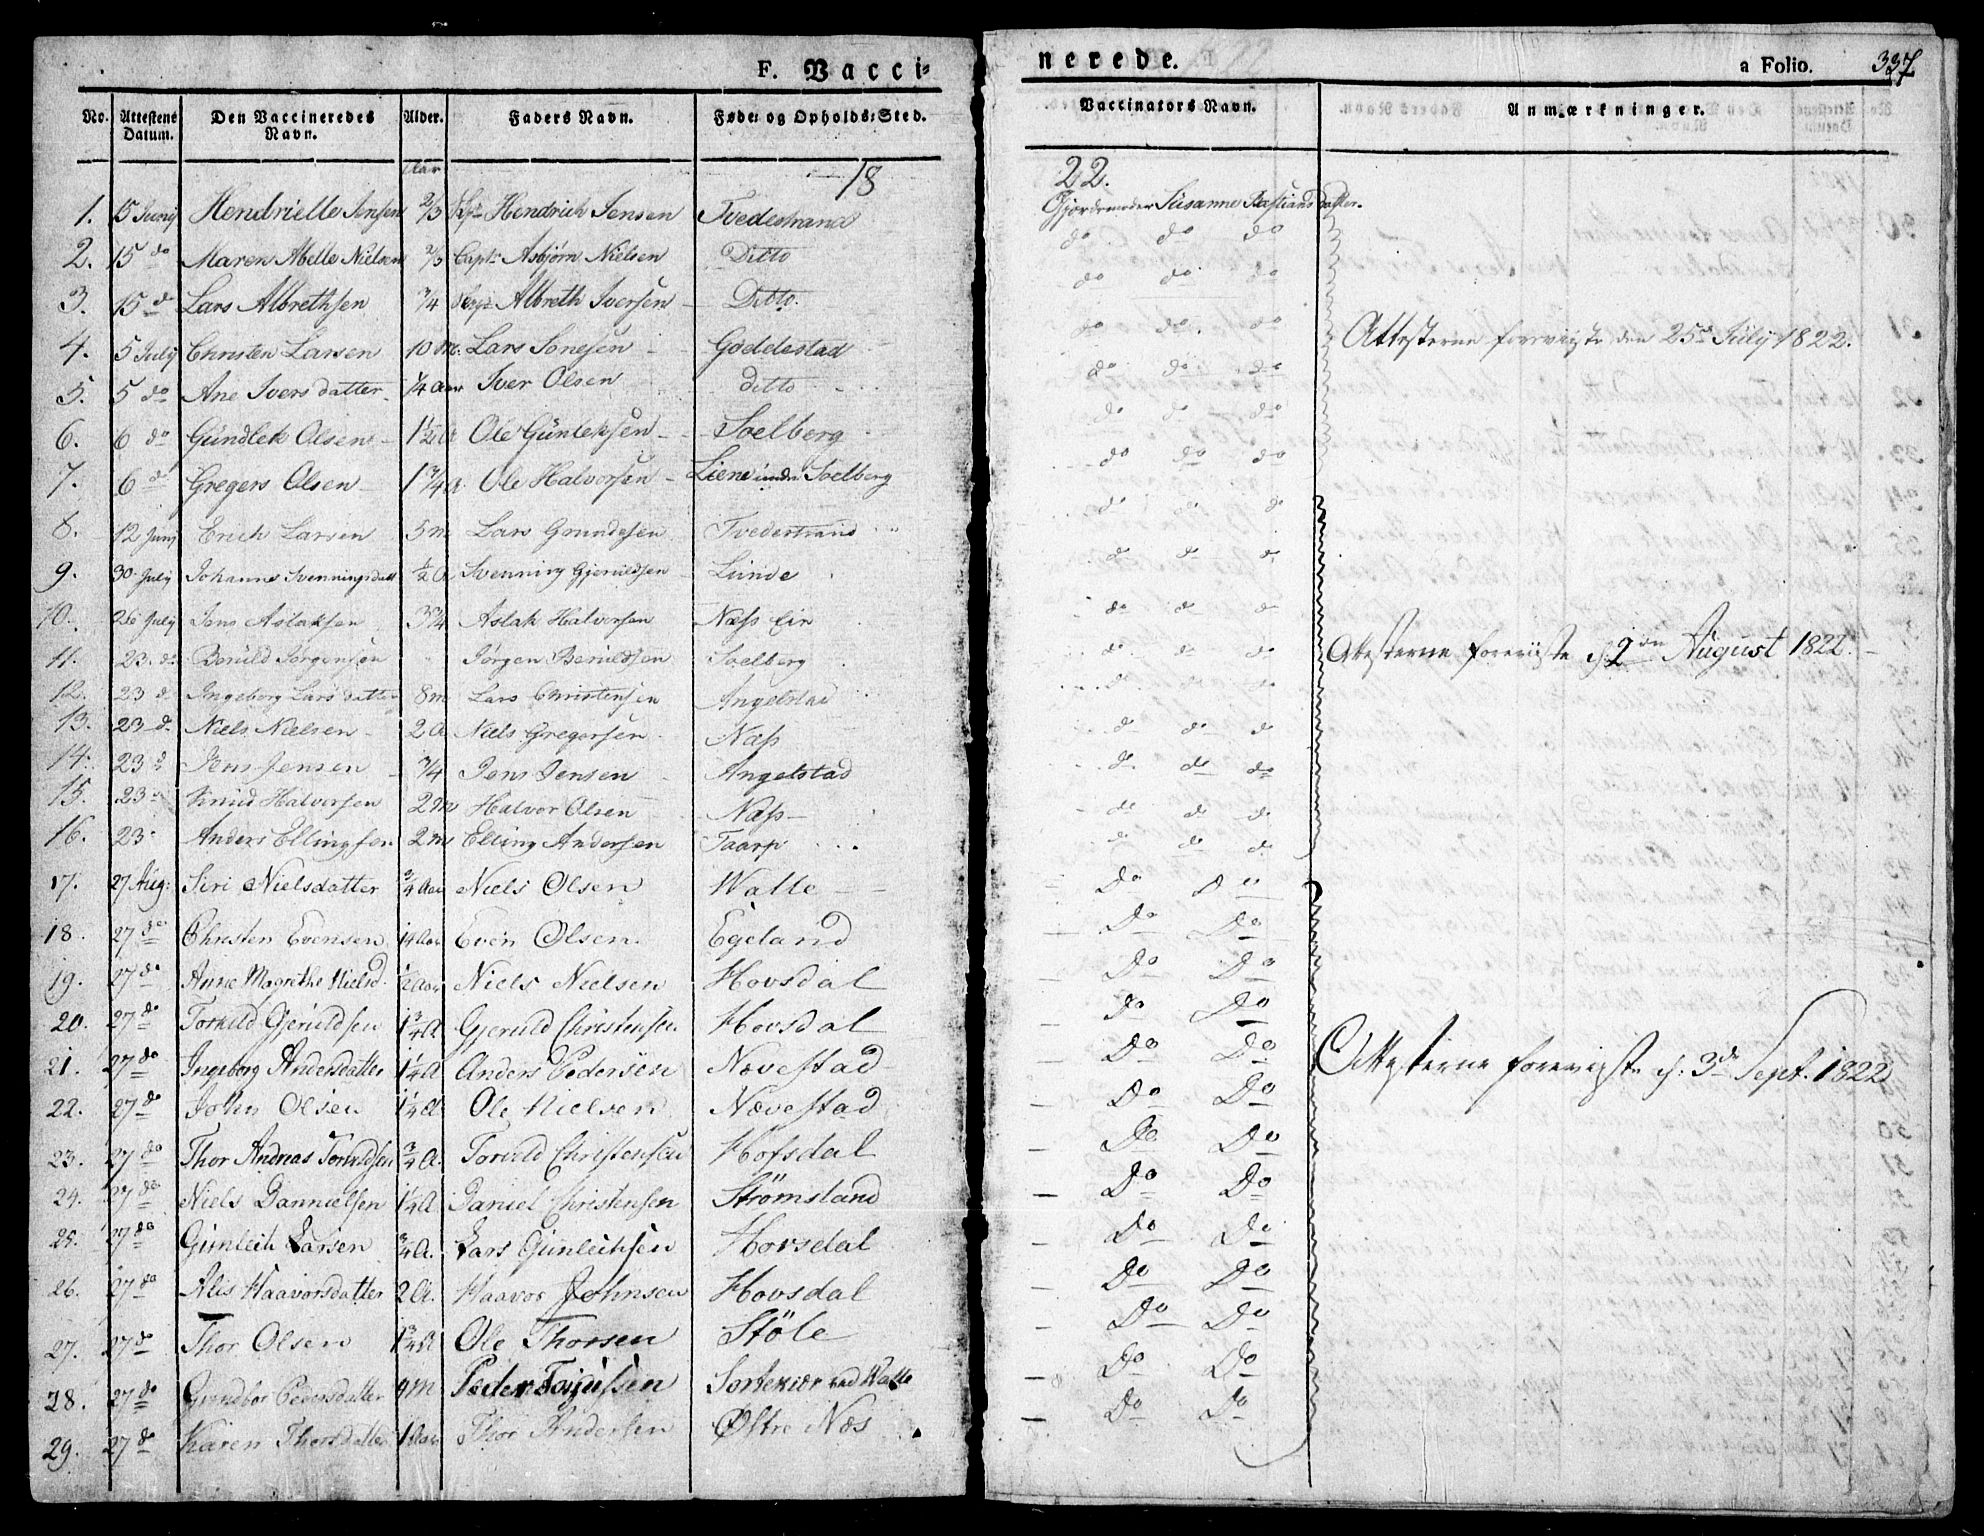 F. Vacci=
nerede.
a Folio. 337
No. Attestens Datum. Den Vaccineredes Navn. Alder. Faders Navn. Føde= og Opholds=Sted. Vaccinators Navn. Anmærkninger.
Aar 18 22.
1. 15 Junij Hendrielle Jensen 2/3 Capt: Hendrich Jensen Tvedestrand Gjordemoder Susanne Bastiansdatter.
2. 15 do Maren Abelle Nielsen 2/3 Capt: Asbjørn Nielsen Ditto do do do
3. 15 do Lars Albrethsen 3/4 Capt: Albreth Iversen Ditto. do do do
4. 5 July Christen Larsen 10 M. Lars Jonesen Goddestad do do do
Attesterne foreviiste den 25de July 1822.
5. 5 do Ane Iversdatter 1/4 Aar Iver Olsen ditto do do do
6. 6 do Gundlek Olsen 1 1/2 A Ole Gunleksen Soelberg do do do
7. 6 do Gregers Olsen 1 3/4 A. Ole Halvorsen Liene under Soelberg do do do
8. 12 Junij Erich Larsen 5 m Lars Grundesen Tvedestrand do do do
9. 30 July Johanne Svenningsdatt 1/2 A Svenning Gjeruldsen Lunde do do do
10. 26 July Jens Aslaksen 3/4 Aslak Halvorsen Næss Eir do do do
11. 23. do Beruld Jørgensen " Jørgen Beruldsen Soelberg do do do
Attesterne foreviiste d. 2den August 1822.
12. 23 d Ingeborg Larsdatter 8 m Lars Christensen Angelstad do do do
13. 23 d. Niels Nielsen 2 A Niels Gregersen Næss do do do
14. 23 d Jens Jensen 3/4 Jens Jensen Angelstad do do do
15. 23 " Knud Halvorsen 2 m Halvor Olsen Næss do do do
16. 23 " Anders Ellingsen 2 m Elling Andersen Taarp do do do
17. 27 Aug: Siri Nielsdatter 3/4 Aar Niels Olsen Walle Do Do
18. 27 do Christen Evensen 14 Aar Even Olsen. Egeland Do Do
19. 27 do Anne Magrethe Nielsd. 1/2 Aar Niels Nielsen Hovsdal Do Do
20. 27 do Torkild Gjeruldsen 1 3/4 A Gjeruld Christensen Hovsdal Do Do
21. 27 do Ingeborg Andersdatter 1 1/4 A Anders Pedersen Nævestad Do Do
Attesterne foreviiste d. 3de Sept. 1822
22. 27 do John Olsen 1 1/4 A Ole Nielsen Nævestad Do Do
23. 27 do Thor Andreas Toruldsen 3/4 A. Toruld Christensen Hofsdal Do Do
24. 27 do Niels Danniælsen 1 1/4 A Daniel Christensen Strømsland Do Do
25. 27 do Gunleik Larsen 3/4 A. Lars Gunleiksen Hovsdal Do Do
26. 27 do Alis Haavorsdatter 2 A. Haavor Johnsen Hovsdal Do Do
27. 27 do Thor Olsen 1 3/4 A Ole Thorsen Støle Do Do
28. 27 do Gundbor Pedersdatter 9 M Peder Tarjussen Sortekiær ved Walle Do Do
29. 27 do Karen Thorsdatter 1 Aar Thor Andersen Østre Næs Do Do